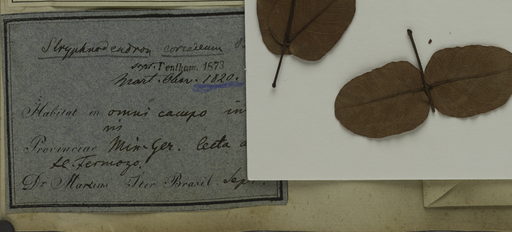 Stryphnodendron coriaceum
sept. Bentham. 1873
Mart. Obsv. 1820.
Habitat in omni campo in
Provinciae Min. Ger. lecta
Dr Martius Iter Brasil. Sept.